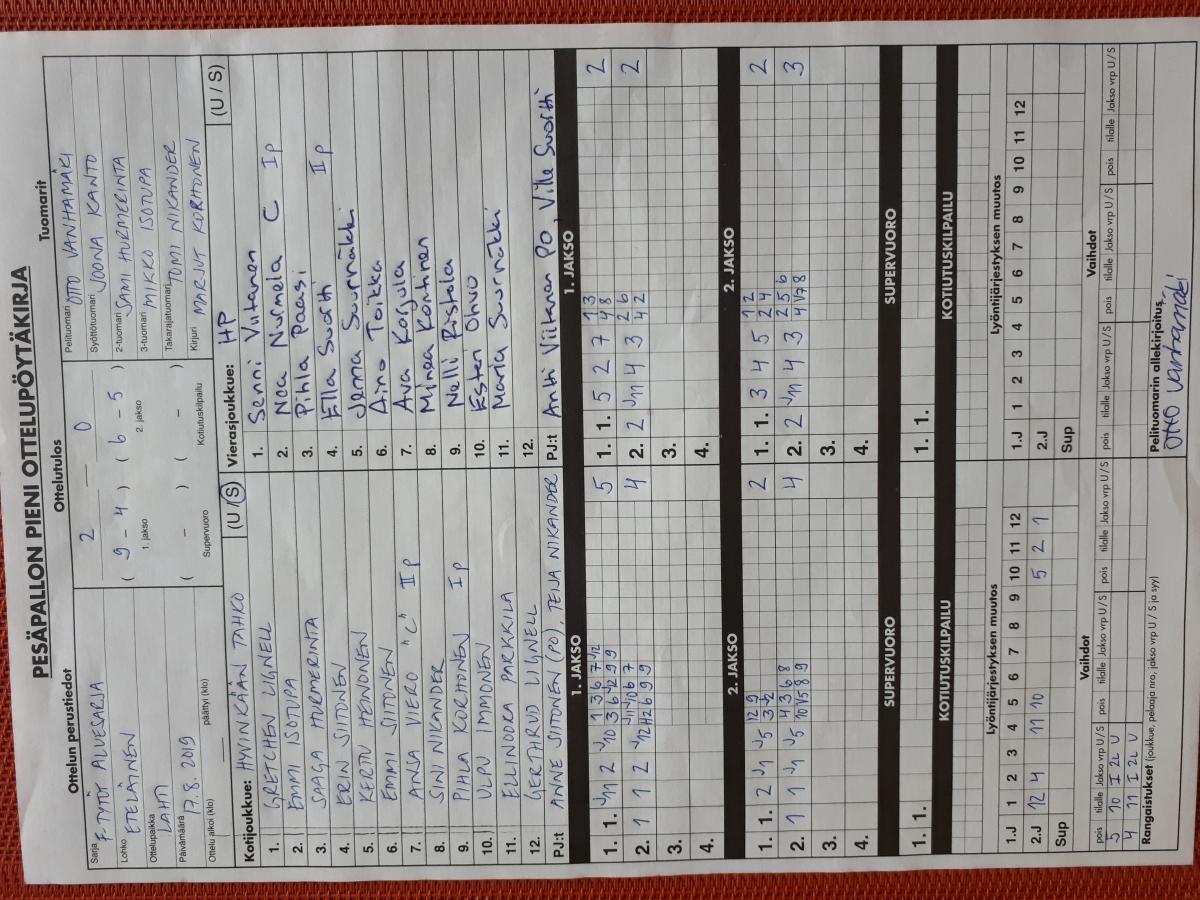 PESÄPALLON PIENI OTTELUPÖYTÄKIRJA
Ottelun perustiedot
Sarja F-TYTÖT ALUESARJA
Lohko ETELÄINEN
Ottelupaikka LAHTI
Päivämäärä 17.8. 2019
Ottelu alkoi (klo) päättyi (klo)
Ottelutulos
2 — 0
( 9 - 4 ) ( 6 - 5 )
1. jakso 2. jakso
( - ) ( - )
Supervuoro Kotiutuskilpailu
Tuomarit
Pelituomari OTTO VANHAMÄKI
Syöttötuomari JOONA KANTO
2-tuomari SAMI HURMERINTA
3-tuomari MIKKO ISOTUPA
Takarajatuomari TOMI NIKANDER
Kirjuri MARJUT KORHONEN
Kotijoukkue: HYVINKÄÄN TAHKO (U / S)
1. GRETCHEN LIGNELL
2. EMMI ISOTUPA
3. SAAGA HURMERINTA
4. ERIN SIITONEN
5. KERTTU HEINONEN
6. EMMI SIITONEN
7. ANJA VIERO "C" II P
8. SINI NIKANDER
9. PIHLA KORHONEN I P
10. ULPU IMMONEN
11. ELLINOORA PARKKILA
12. GERTHRUD LIGNELL
PJ:t ANNE SIITONEN (PO), TEIJA NIKANDER
Vierasjoukkue: HP (U / S)
1. Senni Viitanen
2. Nea Nurmela C I p
3. Pihla Paasi
4. Ella Suortti II p
5. Jenna Suurnäkki
6. Aino Toikka
7. Ava Korjula
8. Minea Korhonen
9. Nelli Ristola
10. Ester Ohvo
11. Maria Suurnäkki
12.
PJ:t Antti Viitanen PO, Ville Suortti
1. JAKSO
1. 1. 5
2. 1 1 2 4
3.
4.
1. JAKSO
1. 1. 5 2 7 2
2. 2 11 4 3 2
3.
4.
2. JAKSO
1. 1. 2 2
2. 1 1 4
3.
4.
2. JAKSO
1. 1. 3 4 5 2
2. 2 11 4 3 3
3.
4.
SUPERVUORO
1. 1.
SUPERVUORO
1. 1.
KOTIUTUSKILPAILU
KOTIUTUSKILPAILU
Lyöntijärjestyksen muutos
1.J 1 2 3 4 5 6 7 8 9 10 11 12
2.J 12 4 11 10 5 2 1
Sup
Lyöntijärjestyksen muutos
1.J 1 2 3 4 5 6 7 8 9 10 11 12
2.J
Sup
Vaihdot
pois tilalle Jakso vrp U / S pois tilalle Jakso vrp U / S pois tilalle Jakso vrp U / S
5 10 I 2L U
4 11 I 2L U
Vaihdot
pois tilalle Jakso vrp U / S pois tilalle Jakso vrp U / S pois tilalle Jakso vrp U / S
Rangaistukset (joukkue, pelaaja nro, jakso vrp U / S ja syy)
Pelituomarin allekirjoitus
Otto Vanhamäki